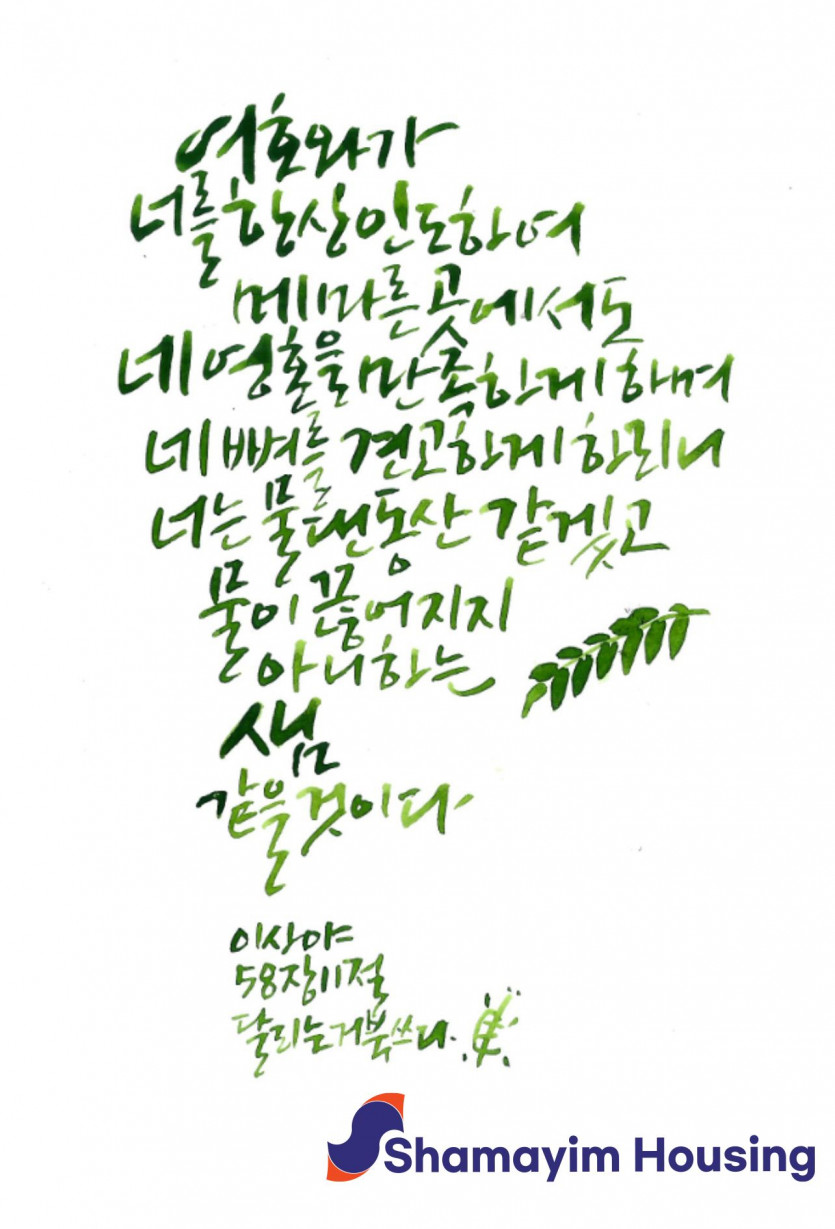 여호와가
너를 항상 인도하여
메마른 곳에서도
네 영혼을 만족하게 하며
네 뼈를 견고하게 하리니
너는 물 댄 동산 같겠고
물이 끊어지지
아니하는
샘
같을 것이다
이사야
58장 11절
달리는거북 쓰다.
Shamayim Housing